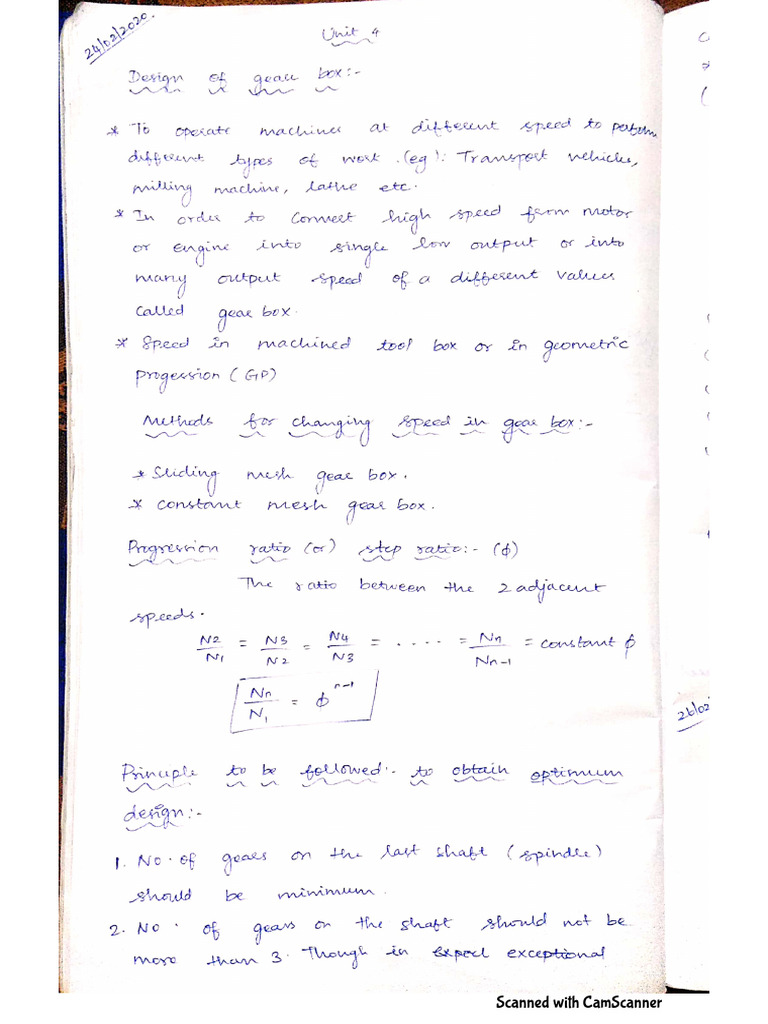 24/02/2020.
Unit 4
Design of gear box:-
* To operate machines at different speed to perform
different types of work .(eg): Transport vehicles,
milling machine, lathe etc.
* In order to convert high speed from motor
or engine into single low output or into
many output speed of a different values
called gear box.
* Speed in machined tool box or in geometric
progession (GP)
Methods for changing speed in gear box:-
* Sliding mesh gear box.
* constant mesh gear box.
Progression ratio (or) step ratio:- (ϕ)
The ratio between the 2 adjacent
speeds.
N2/N1 = N3/N2 = N4/N3 = ..... = Nn/Nn-1 = constant ϕ
Nn/N1 = ϕ^n-1
Principle to be followed:- to obtain optimum
design:-
1. No. of gears on the last shaft (spindle)
should be minimum.
2. No. of gears on the shaft should not be
more than 3. Though in exceptional
26/02
Scanned with CamScanner